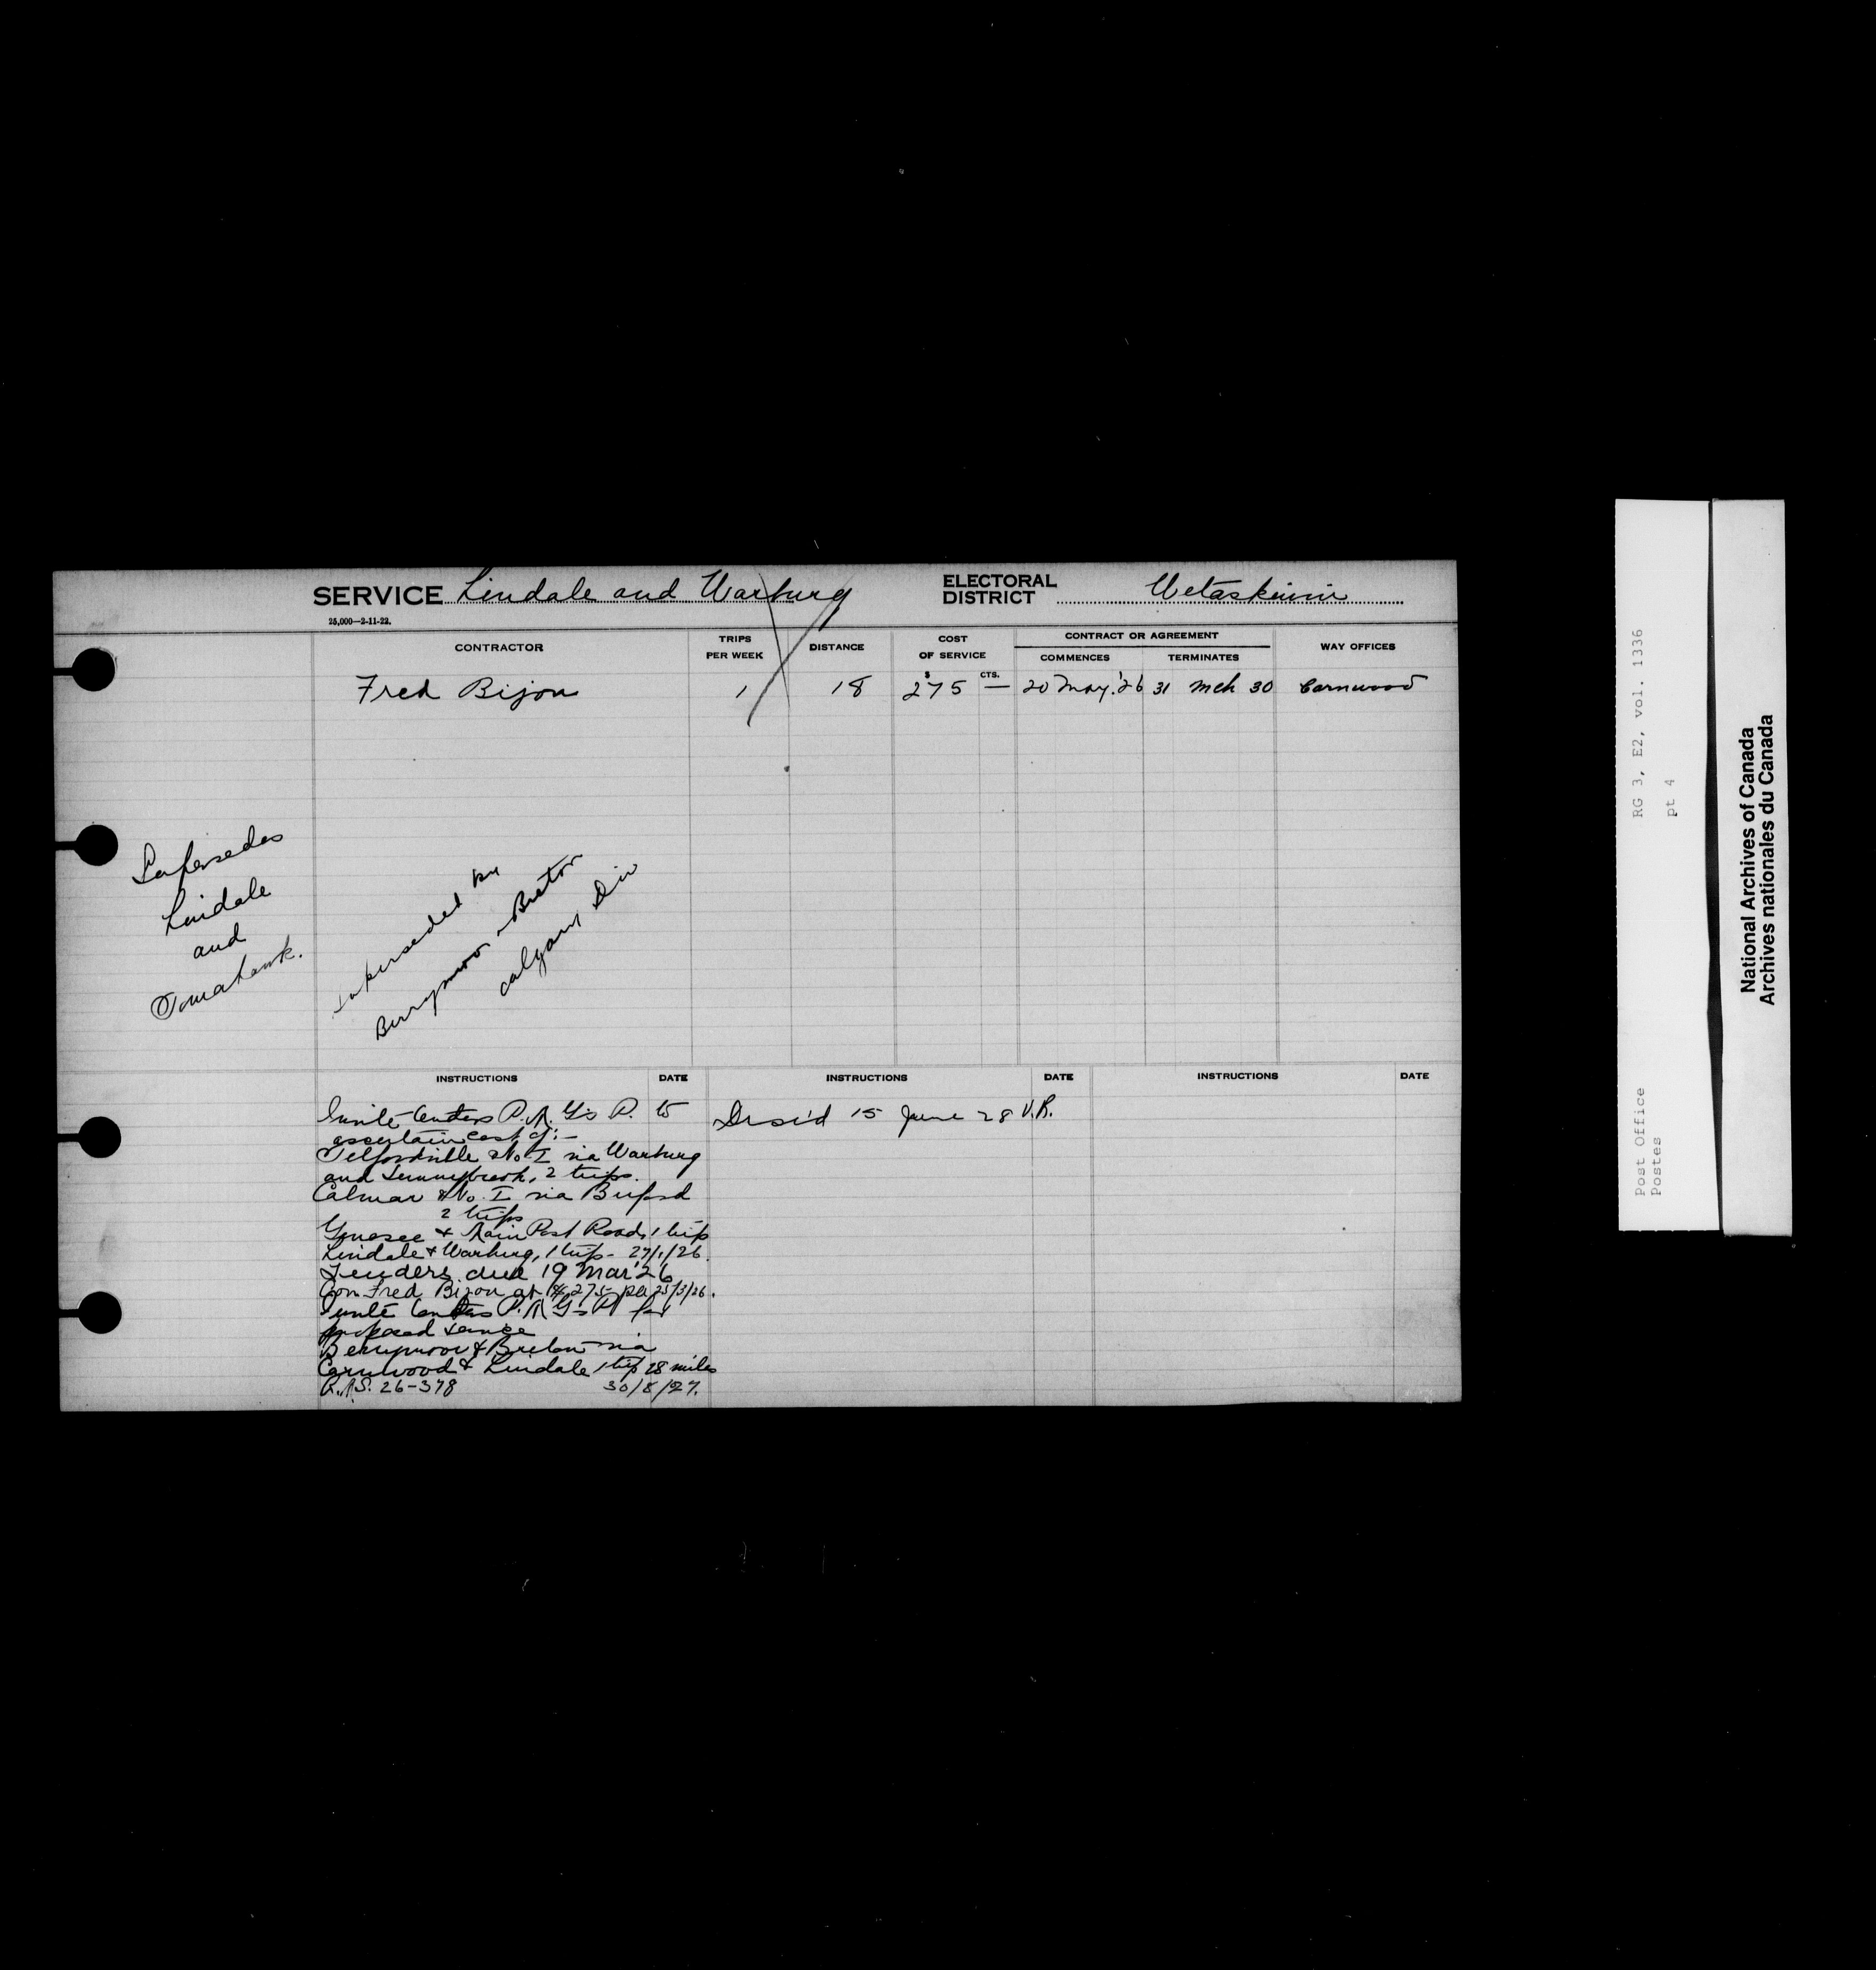 SERVICE Lindale and Warburg
ELECTORAL DISTRICT Wetaskiwin
25,000—2-11-22.
CONTRACTOR
TRIPS PER WEEK
DISTANCE
COST OF SERVICE
CONTRACT OR AGREEMENT
COMMENCES
TERMINATES
WAY OFFICES
$ CTS.
Fred Bijon 1 18 275 — 20 May '26 31 Mch 30 Carnwood
Supersedes
Lindale
and
Tomahawk.
Superseded by
Berrymoor - Breton
Calgary Div
INSTRUCTIONS DATE INSTRUCTIONS DATE INSTRUCTIONS DATE
Invite tenders P. to
ascertain cost of :—
Telfordville & No. I via Warburg
and Sunnybrook, 2 trips.
Calmar & No. I via Buford
2 trips
Genesee & Main Post Road, 1 trip
Lindale & Warburg, 1 trip - 27/1/26.
Tenders due 19 Mar '26
Con Fred Bijon at $275 pa 25/3/26.
Invite tenders for
proposed service
Berrymoor & Breton via
Carnwood & Lindale 1 trip 28 miles
26-378 30/8/27.
Discd 15 June 28 V.R.
RG 3, E2, vol. 1336
pt 4
Post Office
Postes
National Archives of Canada
Archives nationales du Canada